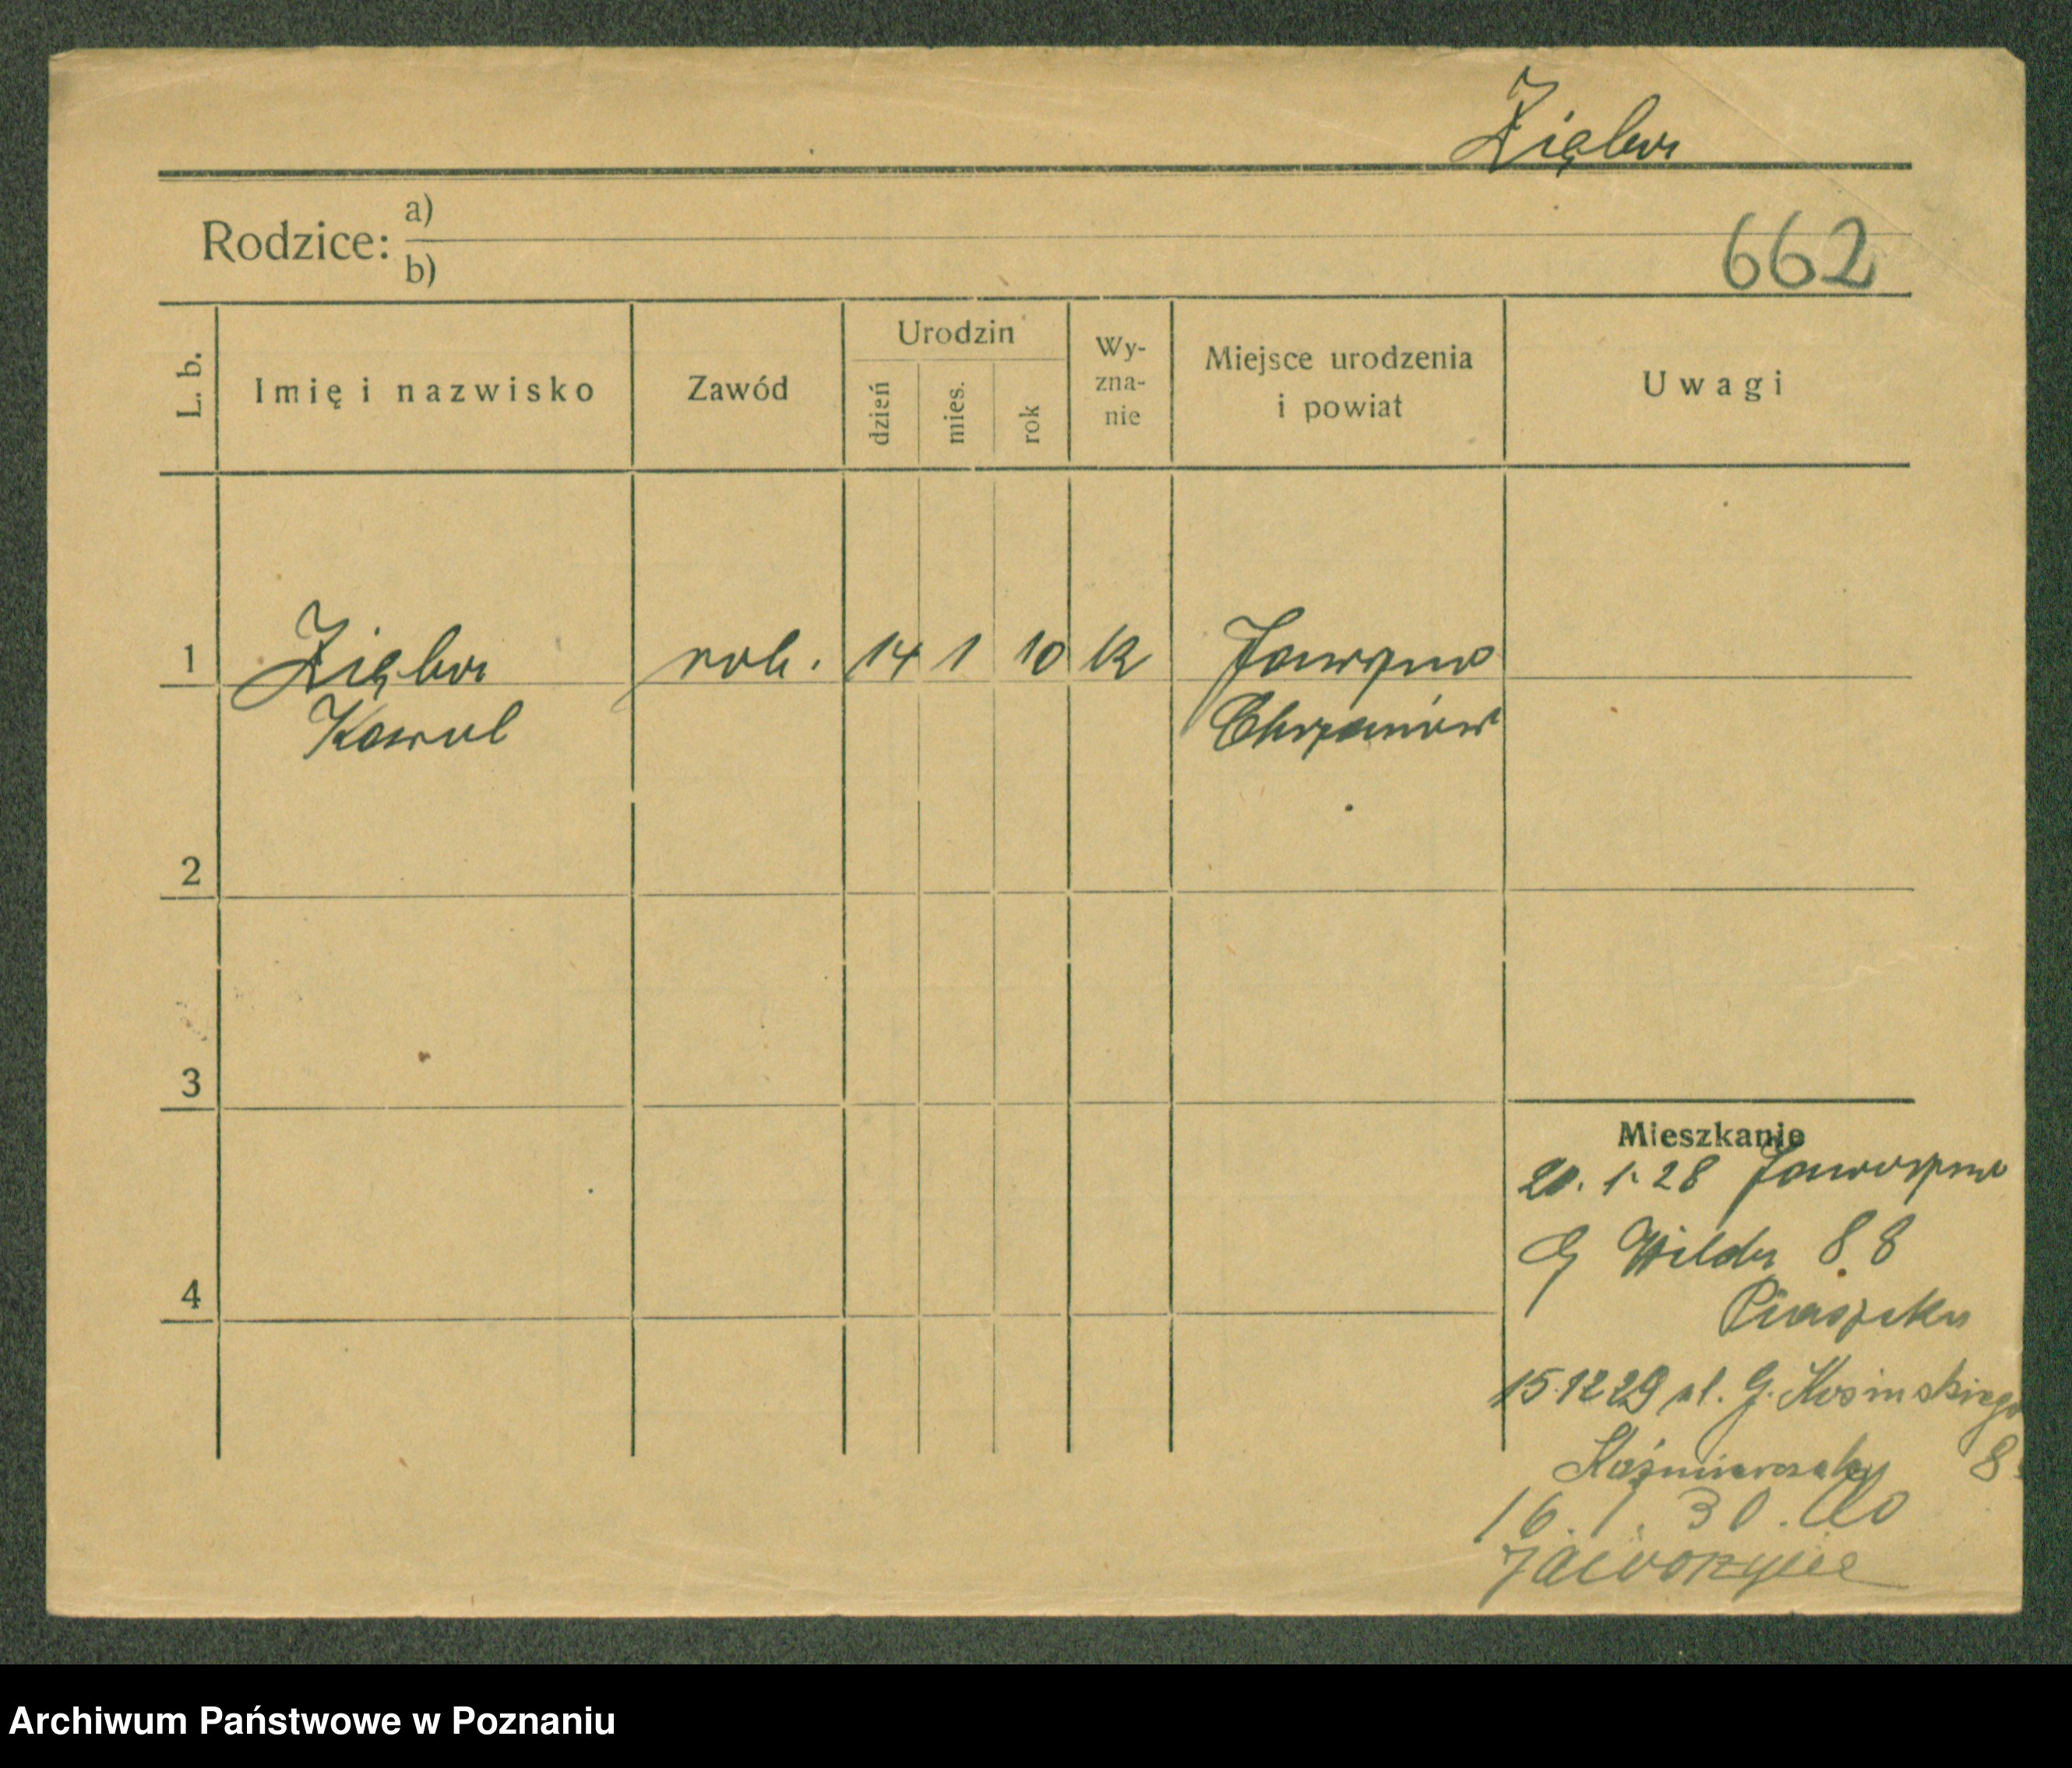 Zięba
Rodzice: a)
b)
662
L. b. Imię i nazwisko Zawód Urodzin dzień mies. rok Wy-zna-nie Miejsce urodzenia i powiat Uwagi
1 Zięba rob. 14 1 10 k Jaworzno
Karol Chrzanów
2
3
4
Mieszkanie
20. 1. 28 Jaworzno
G Wilda 88
Piaszeka
15.12 29 ul. G. Kosinskiego
8
16. 1. 30. do
Jaworzna
Archiwum Państwowe w Poznaniu